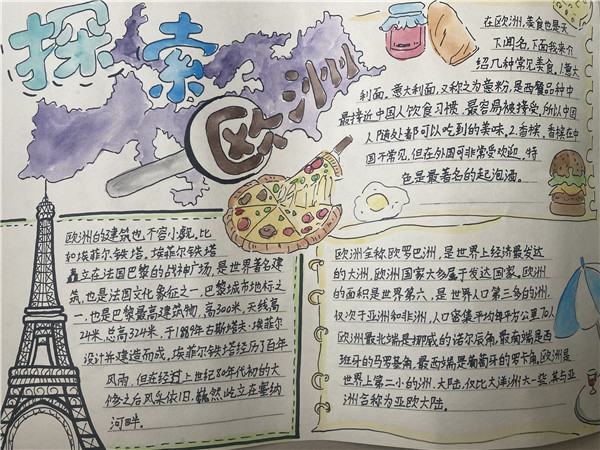 探索
欧洲
在欧洲,美食也是天
下闻名,下面我来介
绍几种常见美食,1意大
利面,意大利面,又称之为意粉,是西餐品种中
最接近中国人饮食习惯,最容易被接受,所以中国
人随处都可以吃到的美味,2.香槟,香槟在中
国不常见,但在外国可非常受欢迎,特
色是最著名的起泡酒。
欧洲的建筑也,不容小觑,比
如埃菲尔铁塔,埃菲尔铁塔
矗立在法国巴黎的战神广场,是世界著名建
筑,也是法国文化象征之一,巴黎城市地标之
一,也是巴黎最高建筑物,高300米,天线高
24米,总高324米,于1889年古斯塔夫·埃菲尔
设计并建造而成,埃菲尔铁塔经历了百年
风雨,但在经过上世纪80年代初的大
修之后风采依旧,巍然屹立在塞纳
河畔。
欧洲全称欧罗巴洲,是世界上经济最发达
的大洲,欧洲国家大多属于发达国家,欧洲
的面积是世界第六,是世界人口第三多的洲,
仅次于亚洲和非洲,人口密集平均每平方公里70人
欧洲最北端是挪威的诺尔辰角,最南端是西
班牙的马罗基角,最西端是葡萄牙的罗卡角,欧洲是
世界上第二小的洲、大陆,仅比大洋洲大一些,其与亚
洲合称为亚欧大陆。